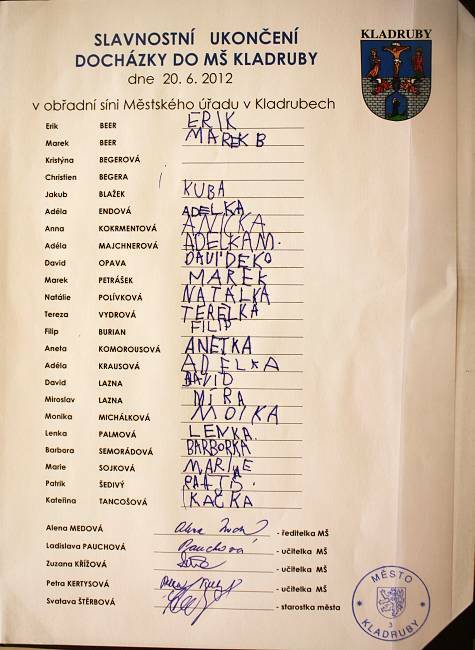 SLAVNOSTNÍ UKONČENÍ
DOCHÁZKY DO MŠ KLADRUBY
KLADRUBY
dne 20. 6. 2012
v obřadní síni Městského úřadu v Kladrubech
Erik BEER ERIK
Marek BEER MAREK B
Kristýna BEGEROVÁ
Christien BEGERA
Jakub BLAŽEK KUBA
Adéla ENDOVÁ ADELKA
Anna KOKRMENTOVÁ ANIČKA
Adéla MAJCHNEROVÁ ADELKAM.
David OPAVA DAVIDEKO
Marek PETRÁŠEK MAREK
Natálie POLÍVKOVÁ NATALKA
Tereza VYDROVÁ TEREZKA
Filip BURIAN FILIP
Aneta KOMOROUSOVÁ ANETKA
Adéla KRAUSOVÁ ADELKA
David LAZNA DAVID
Miroslav LAZNA MÍRA
Monika MICHÁLKOVÁ MOIKA
Lenka PALMOVÁ LENKA.
Barbora SEMORÁDOVÁ BARBORKA
Marie SOJKOVÁ
Patrik ŠEDIVÝ
Kateřina TANCOŠOVÁ KAČKA
Alena MEDOVÁ - ředitelka MŠ
Ladislava PAUCHOVÁ Pauchová - učitelka MŠ
Zuzana KŘÍŽOVÁ - učitelka MŠ
Petra KERTYSOVÁ - učitelka MŠ
Svatava ŠTĚRBOVÁ - starostka města
MĚSTO
3
KLADRUBY